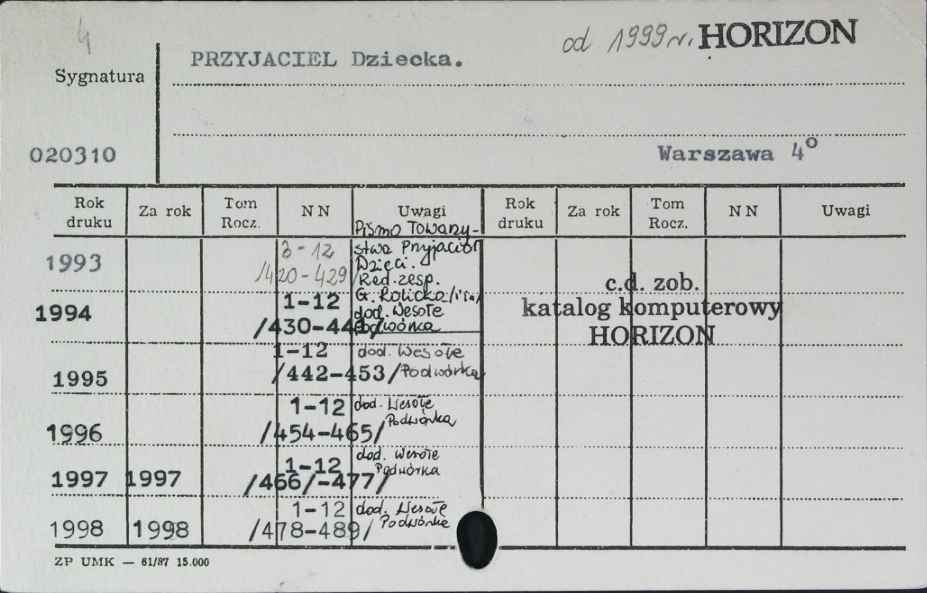 4
od 1999 r. HORIZON
PRZYJACIEL Dziecka.
Sygnatura
020310
Warszawa 4º
Rok druku Za rok Tom Rocz. NN Uwagi Rok druku Za rok Tom Rocz. NN Uwagi
Pismo Towarzy-
stwa Przyjaciół
Dzieci.
1993 3-12
/420-429/ Red. zesp.
G. Rolicka /i in/
1994 1-12 dod. Wesołe
/430-441/ Podwórka
1995 1-12 dod. Wesołe
/442-453/ Podwórka
1996 1-12 dod. Wesołe
/454-465/ Podwórka
1997 1997 1-12 dod. Wesołe
/466/-477/ Podwórka
1998 1998 1-12 dod. Wesołe
/478-489/ Podwórka
c.d. zob.
katalog komputerowy
HORIZON
ZP UMK — 61/87 15.000